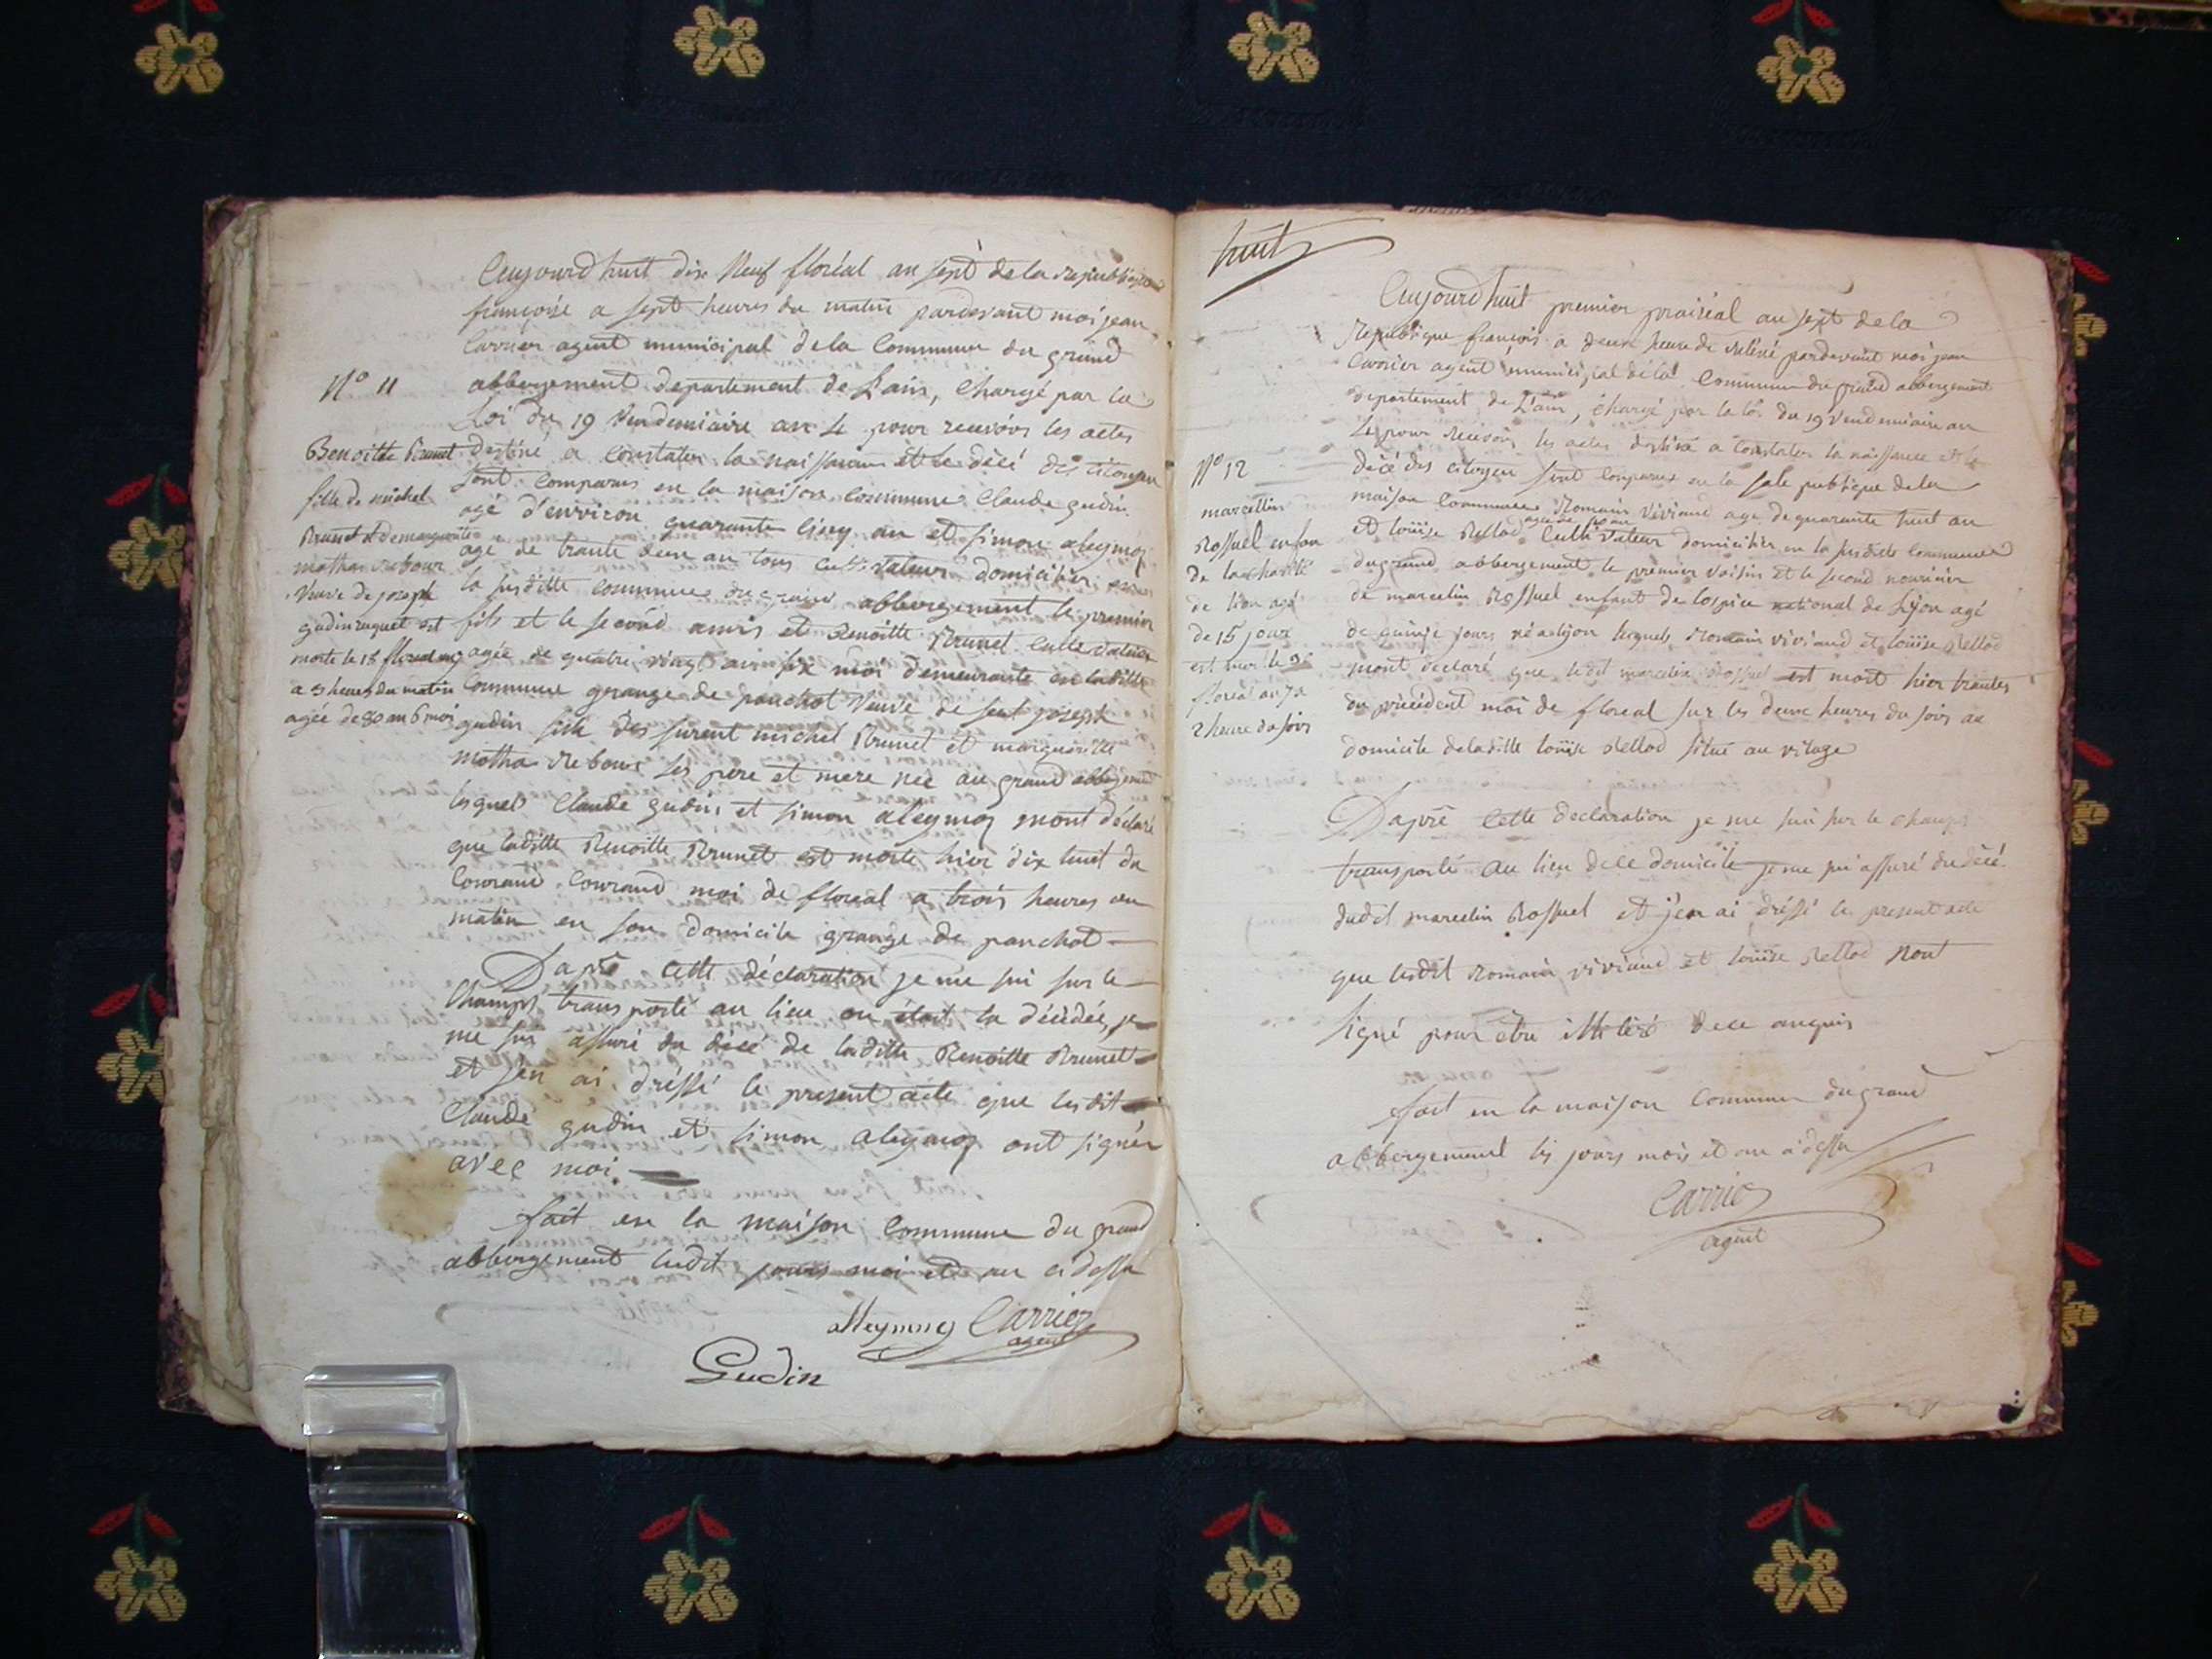 Aujourd huit dix Neuf floréal an sept de la republique
françoise a sept heures du matin pardevant moi jean
Carrier agent municipal de la Commune du grand
abbergement departement de L'ain, Chargé par la
Loi du 19 Vendemiaire an 4 pour recevoir les actes
destiné a Constater la naissance et le décé des citoyen
sont comparus en la maison commune Claude gudin
agé d'environ quarante cinq an et simon aleymoz
age de trante deux an tous cultivateur domicilier en
la susditte commune du grand abbergement le premier
fils et le second amis et Benoitte Brunet Cultivateur
agée de quatre vingt an six moi demeurante en laditte
Commune grange de panchot veuve de feut joseph
gudin fille des furent michel Brunet et margueritte
matha rebour ses pere et mere née au grand abbergement
lesquels Claude gudin et simon aleymoz mont déclaré
que laditte Benoitte Brunet est morte hier dix huit du
Courand Courand moi de floreal a trois heures du
matin en son domicile grange de panchot
Daprè Cette déclaration je me sui sur le
Champs transporté au lieu ou étoit la décédée, je
me sui assuré du décé de laditte Benoitte Brunet
et j'en ai dréssé le present acte que lesdit
Claude gudin et simon aleymoz ont signér
avec moi
fait en la maison Commune du grand
abbergement ledit jours moi et an ci dessu
alleymoz Carrier
agent
Gudin
N° 11
Benoitte Brunet
fille de michel
Brunet et de marguerite
matha rebour
veuve de joseph
gudin est
morte le 18 floreal
a 3 heures du matin
agée de 80 an 6 moi
huit
Aujourd huit premier prairéal an sept de la
Republique françois a deux heure de relévé pardevant moi jean
Carrier agent municipal de la Commune du grand abbergement
departement de L'ain, chargé par la loi du 19 vendemiaire an
4 pour recevoir les actes destiné a constater la naissance et le
décé des citoyen sont comparus en la sale publique de la
maison Commune Romain viviand age de quarante huit an
et loüise Rellod cultivateur domicilier en la susdite commune
du grand abbergement le premier voisin et le second nourricier
de marcelin Rossuel enfant de lospice national de Lyon agé
de quinze jours né a lyon lesquels Romain viviand et loüise Rellod
mont déclaré que ledit marcelin Rossuel est mort hier trantes
du précédent moi de floreal sur les deux heures du soir au
domicile de laditte loüise Rellod situé au vilage
Daprè Cette declaration je me sui sur le champs
transporté au lieu dece domicile je me sui assuré du décé
dudit marcelin Rossuel et j'en ai dréssé le present acte
que lesdit Romain viviand et loüise Rellod nont
signé pour être illitéré dece anquis
fait en la maison Commune du grand
abbergement les jours mois et an ci dessu
Carrier
agent
N° 12
marcellin
Rossuel enfan
de la charité
de lion agé
de 15 jour
est mor le 30
floreal an 7 a
2 heure du soir